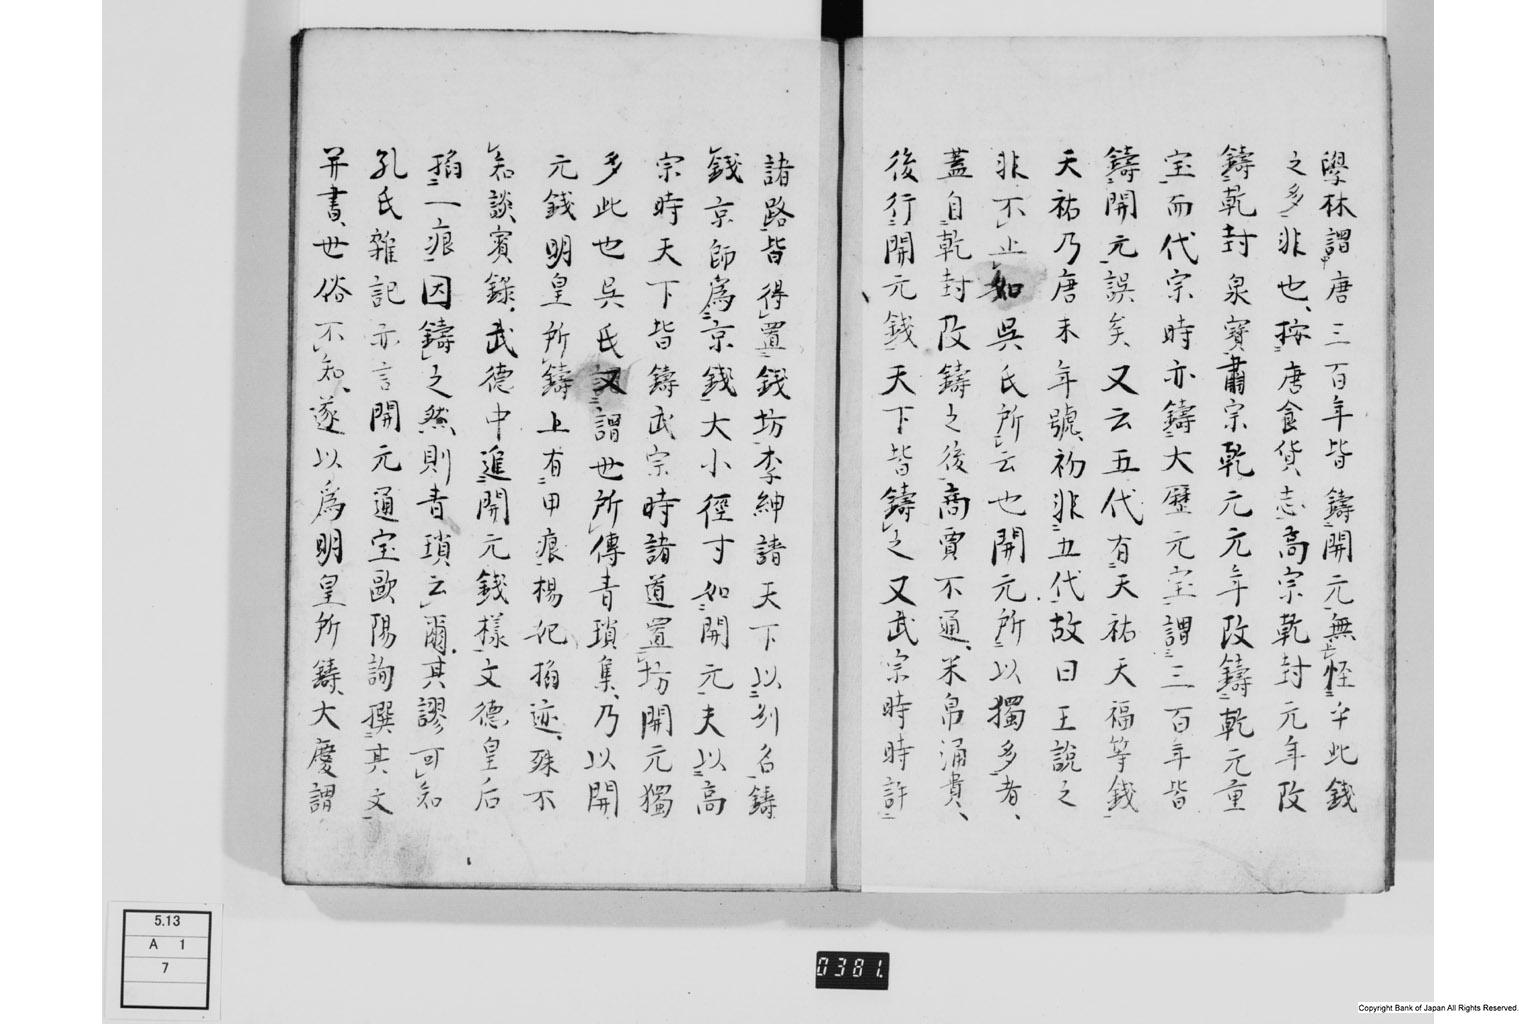 學林謂唐三百年皆鑄開元無怪乎此錢
之多非也按唐食貨志高宗乾封元年改
鑄乾封泉寶肅宗乾元元年改鑄乾元重
宝而代宗時亦鑄大歷元宝謂三百年皆
鑄開元誤矣又云五代有天祐天福等錢
天祐乃唐末年號初非五代故曰王說之
非不止如吳氏所云也開元所以獨多者
蓋自乾封改鑄之後商賈不通米帛涌貴
後行開元錢天下皆鑄之又武宗時時許
諸路皆得置錢坊李紳請天下以州名鑄
錢京師爲京錢大小徑寸如開元夫以高
宗時天下皆鑄武宗時諸道置坊開元獨
多此也吳氏又謂世所傳青瑣集乃以開
元錢明皇所鑄上有甲痕楊妃掐迹殊不
知談賓錄武德中進開元錢樣文德皇后
掐一痕因鑄之然則青瑣云爾其謬可知
孔氏雜記亦言開元通宝歐陽詢撰其文
并書世俗不知遂以爲明皇所鑄大慶謂
5.13
A 1
7
0381
Copyright Bank of Japan All Rights Reserved.